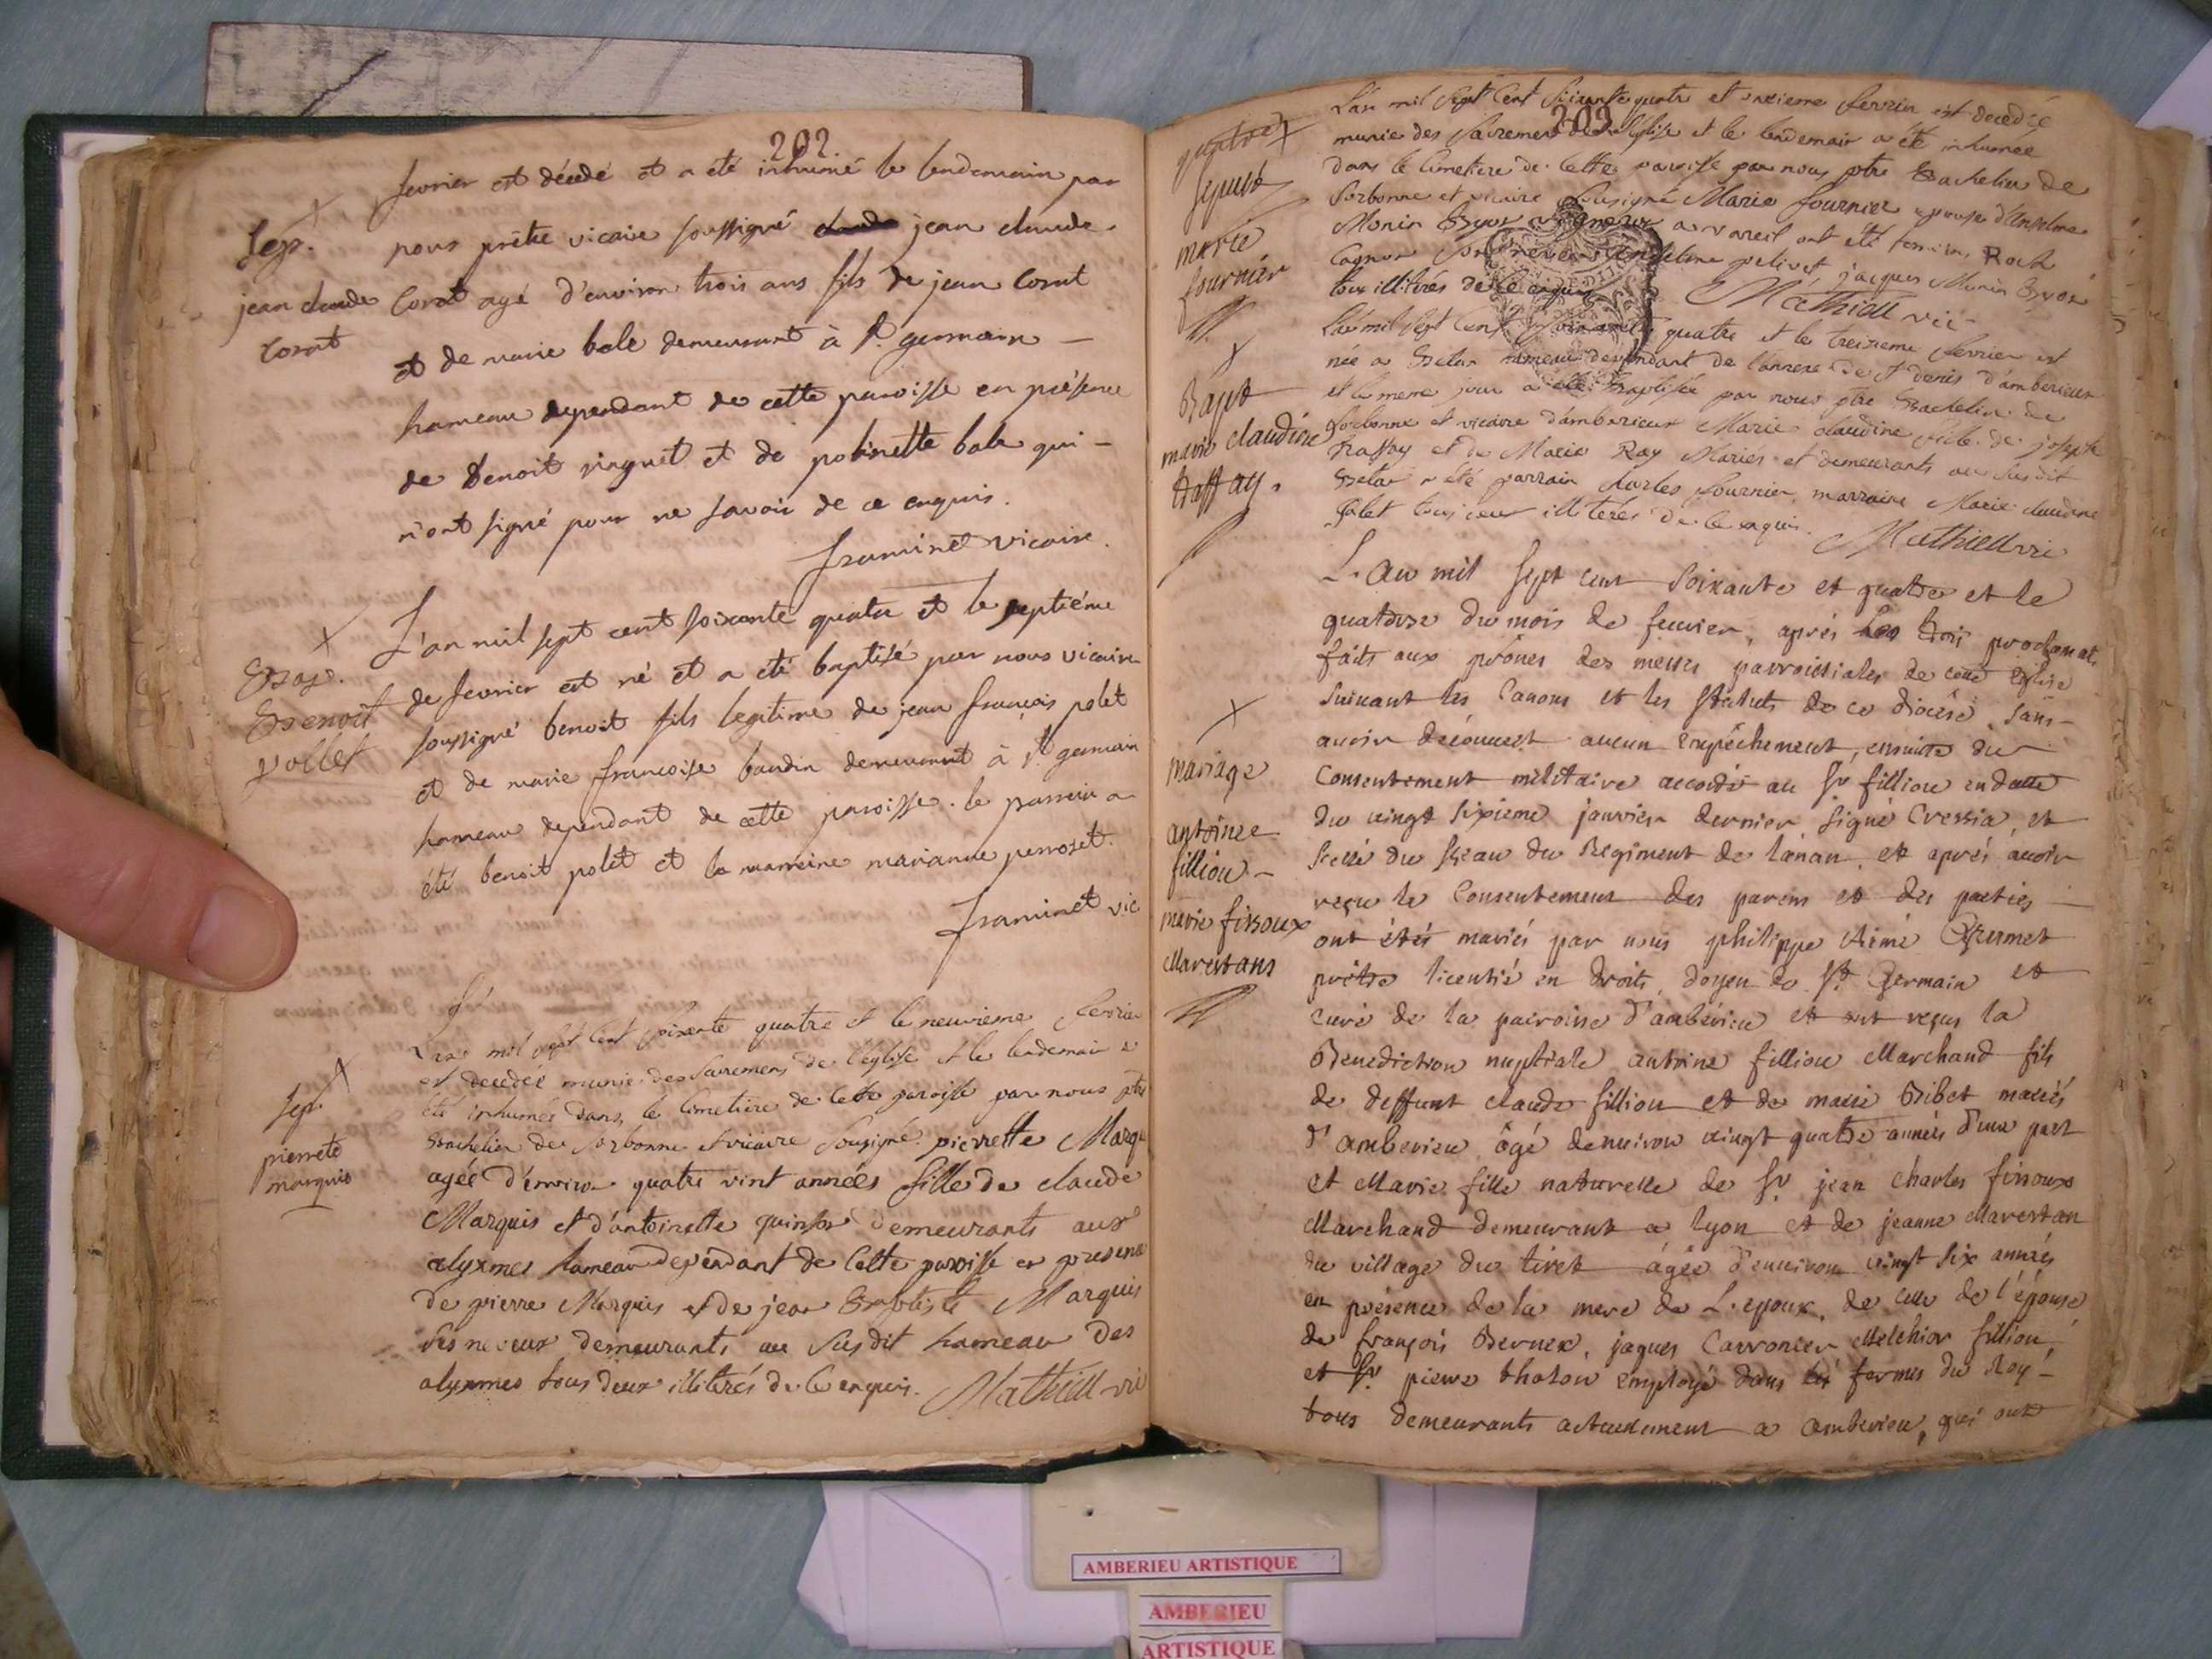 202
fevrier est décédé et a été inhumé le lendemain par
nous prêtre vicaire soussigné jean claude
Sep.
jean claude
Corat
Corat agé d'environ trois ans fils de jean Corat
et de marie bole demeurant à st. germain –
hameau dependant de cette paroisse en présence
de benoit et de bole qui –
n'ont signé pour ne savoir de ce enquis.
framinet vicaire.
Bap.
Benoit
pollet
L'an mil sept cent soixante quatre et le septiéme
de fevrier est né et a été baptisé par nous vicaire
soussigné benoit fils legitime de jean françois polet
et de marie francoise baudin demeurant à st germain
hameau dependant de cette paroisse. le parrein a
été benoit polet et la marreine marianne perroset.
framinet vic
Sep.
pierrete
marquis
L'an mil sept cent soixante quatre et le neuvieme fevrier
est decedée munie des sacremens de l'eglise et le lendemain a
été inhumée dans le cimetiere de cette paroisse par nous ptre
Bachelier de sorbonne et vicaire sousigné pierrette Marqu
agée d'environ quatre vint années fille de claude
Marquis et d'antoinette demeurants aux
alymes hameau dependant de cette paroisse en presence
de pierre Marquis et de jean Baptiste Marquis
ses neveux demeurants au susdit hameau des
alymes tous deux illiterés de ce enquis. Mathieu vic
203
sepult
marie
fournier
L'an mil sept cent soixante quatre et onzieme fevrier est decedée
munie des sacremens de l'eglise et le lendemain a été inhumée
dans le cimetiere de cette paroisse par nous ptre Bachelier de
Sorbonne et vicaire sousigné Marie fournier epouse d'Anselme
Monin a vareil ont été temoins Roch
Cagnon son neveu Anselme jacques Monin
tous illiterés de ce enquis Mathieu vic
Bapt
marie claudine
traffay.
L'an mil sept cent soixante quatre et le treizieme fevrier est
née a Betar hameau dependant de l'annexe de st denis d'amberieux
et le meme jour a été Baptisée par nous ptre Bachelier de
Sorbonne et vicaire d'amberieux Marie claudine fille de joseph
traffay et de Marie Ray Mariés et demeurants au susdit
Betar a été parrain charles fournier, marraine Marie claudine
tous deux illiterés de ce enquis. Mathieu vic
mariage
antoinee
filliou –
marie fissoux
Marestans
L'an mil sept cent soixante et quatre et le
quatorze du mois de feuvier, aprés les trois proclamat.
faits aux prônes des messes parroissiales de cette église
suivant les Canons et les statuts de ce diocèse, sans –
auoir découuert aucun empêchement, ensuite du
Consentement militaire accordé au Sr filliou en datte
du vingt sixieme janvier dernier, signé Cressia, et
scellé du sçeau du Regiment de lanan, et aprés auoir
reçu le Consentement des parens et des parties –
ont étés mariés par nous philippe Aimé Grumet
prêtre licentié en droits, doyen de St. Germain et
curé de la parroisse d'ambérieu et ont reçus la
Benediction nuptiale antoine filliou Marchand fils
de deffunt claude filliou et de marie Bibet mariés
d'amberieu, âgé denuiron vingt quatre années d'une part
et Marie fille naturelle de Sr. jean charles fissoux
Marchand demeurant a lyon et de jeanne Marestan
du village du tiret âgée d'enuiron vingt six années
en présence de la mere de L'epoux, de celle de l'épouse
de françois Bernex, jaques Carronier Melchior filliou,
et Sr. pierre tholon employé dans les fermes du Roy –
tous demeurants actuelement a amberieu, qui ont
AMBERIEU ARTISTIQUE
AMBERIEU
ARTISTIQUE